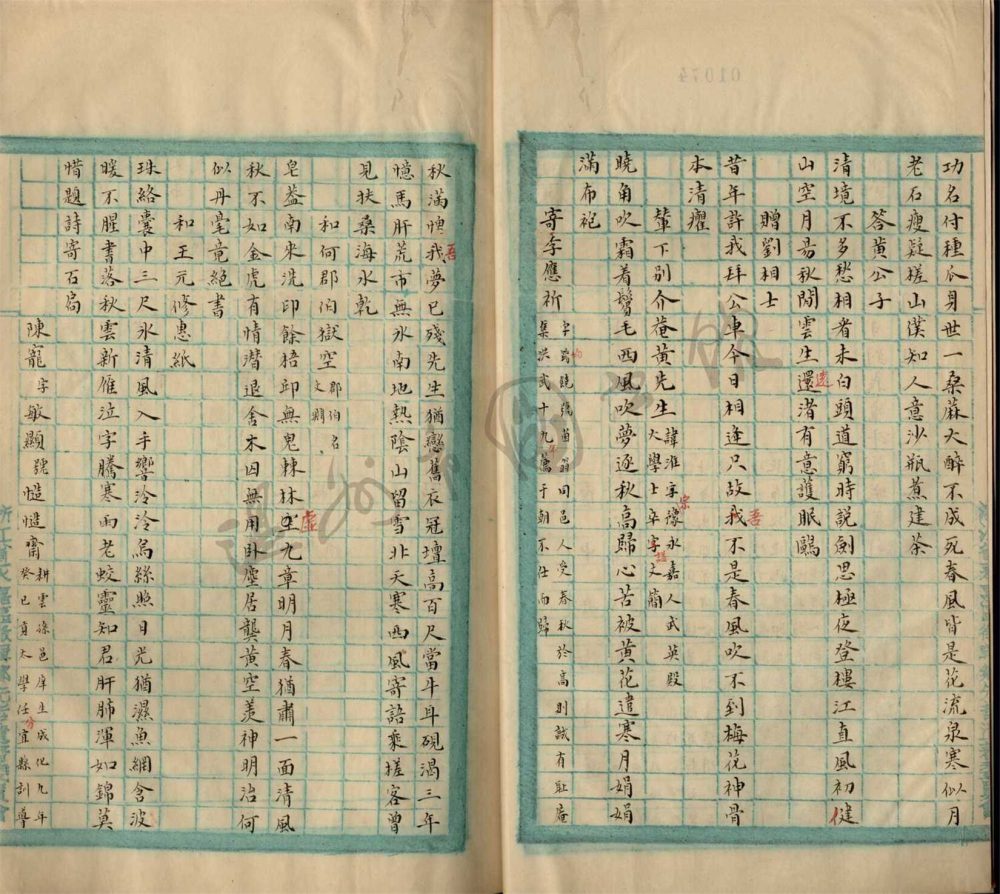 功名付種瓜身世一桑麻大醉不成死春風皆是花流泉寒似月
老石瘦疑槎山漢知人意沙瓶煮建茶
答黃公子
清境不多愁相者未白頭道窮時說劍思極夜登樓江直風初健
山空月易秋閒雲生還渚有意護眠鷗
贈劉相士
昔年許我拜公車今日相逢只故我吾不是春風吹不到梅花神骨
本清癯
輦下別介菴黃先生 諱淮字宗豫永嘉人武英殿
大學士卒謚文簡
曉角吹霜着鬢毛西風吹夢逐秋高歸心苦被黃花遣寒月娟娟
滿布袍
寄李應祈
集洪武十九年薦于朝不仕而歸
秋滿吾夢已殘先生猶戀舊衣冠壇高百尺當斗耳硯渴三年
憶馬肝荒市無氷南地熱陰山留雪北天寒西風寄語乘槎客曾
見扶桑海水乾
和何郡伯獄空 郡伯名
文
皂蓋南來洗印餘梧邱無鬼棘林空虛九章明月春猶肅一面清風
秋不如金虎有情潛退舍木囚無用卧塵居龔黃空羨神明治何
似丹毫竟絕書
和王元修惠紙
珠絡囊中三尺氷清風入手響泠泠烏絲照日光猶濕魚網含波
暖不腥書落秋雲新雁泣字騰寒雨老蛟靈知君肝肺渾如錦莫
惜題詩寄石扃
陳寵 字敏顯號慥慥齋 耕雲孫邑庠生成化九年
癸巳貢太學任分宜縣訓導
01074